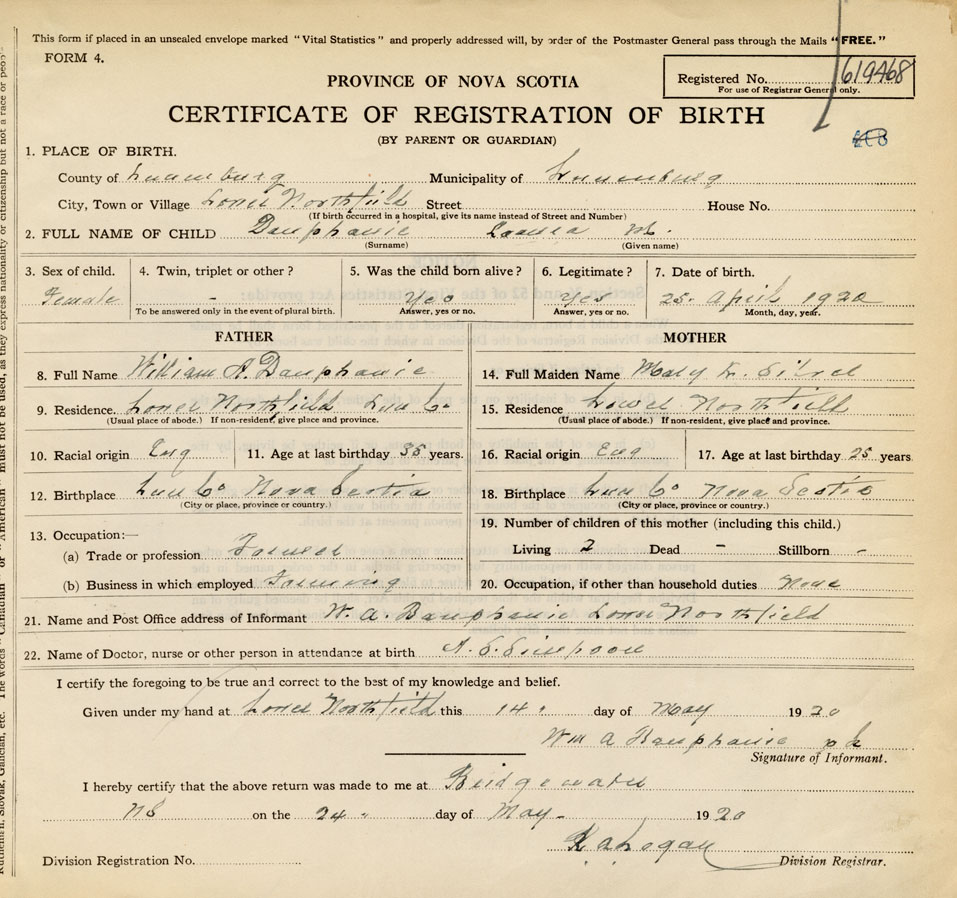 This form if placed in an unsealed envelope marked "Vital Statistics" and properly addressed will, by order of the Postmaster General pass through the Mails "FREE."
FORM 4.
Registered No. 619468
For use of Registrar General only.
PROVINCE OF NOVA SCOTIA
CERTIFICATE OF REGISTRATION OF BIRTH
(BY PARENT OR GUARDIAN)
1. PLACE OF BIRTH.
County of Lunenburg Municipality of Lunenburg
City, Town or Village Lower Northfield Street House No.
(If birth occurred in a hospital, give its name instead of Street and Number)
2. FULL NAME OF CHILD Dauphanie M.
(Surname) (Given name)
3. Sex of child. 4. Twin, triplet or other? 5. Was the child born alive? 6. Legitimate? 7. Date of birth.
Female - Yes Yes 25. April 1920
To be answered only in the event of plural birth. Answer, yes or no. Answer, yes or no. Month, day, year.
FATHER MOTHER
8. Full Name William A. Dauphanie 14. Full Maiden Name Mary
9. Residence. Lower Northfield Lun Co. 15. Residence Lower Northfield
(Usual place of abode.) If non-resident, give place and province. (Usual place of abode.) If non-resident, give place and province.
10. Racial origin Eng 11. Age at last birthday years. 16. Racial origin Eng 17. Age at last birthday 25 years
12. Birthplace Lun Co Nova Scotia 18. Birthplace Lun Co Nova Scotia
(City or place, province or country.) (City or place, province or country.)
13. Occupation:— 19. Number of children of this mother (including this child.)
(a) Trade or profession Farmer Living 2 Dead - Stillborn -
(b) Business in which employed Farming 20. Occupation, if other than household duties None
21. Name and Post Office address of Informant W. A. Dauphanie Lower Northfield
22. Name of Doctor, nurse or other person in attendance at birth
I certify the foregoing to be true and correct to the best of my knowledge and belief.
Given under my hand at Lower Northfield this 14 day of May 1920
Wm A Dauphanie
Signature of Informant.
I hereby certify that the above return was made to me at Bridgewater
NS on the 24 day of May 1920
Division Registration No. Division Registrar.